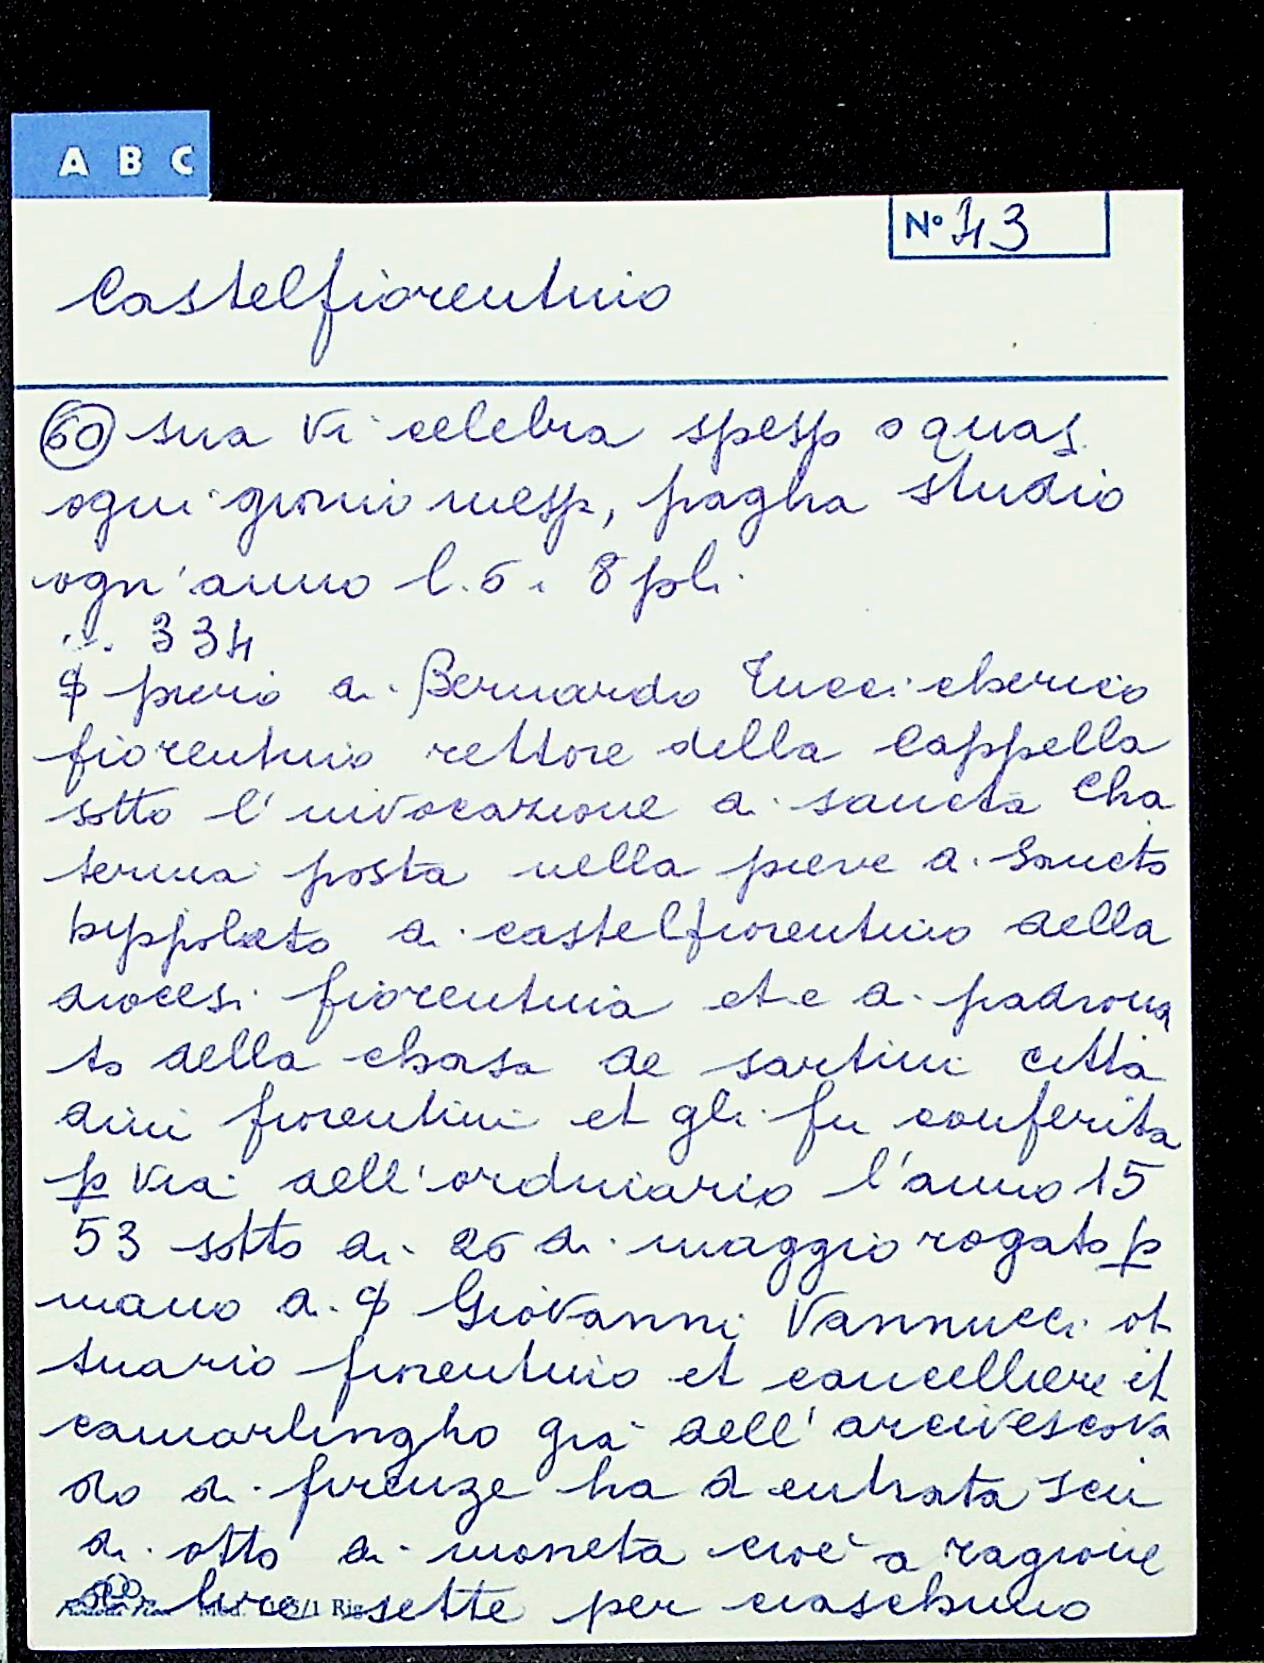 A B C
N° 43
Castelfiorentino
60 sua vi celebra spesp o quasi
ogni giorni mesp, pagha studio
ogn'anno l. 5 . 8 pli
334
piero di Bernardo Tucci cherico
fiorentino rettore della Cappella
sotto l'invocazione di sancta Cha
terina posta nella pieve di Sancto
hyppolito di castelfiorentino della
diocesi fiorentina et e di padrona
to della chasa de sartini citta
dini fiorentini et gli fu conferita
p via dell'ordinario l'anno 15
53 sotto di 26 di maggio rogato p
mano di Giovanni Vannucci at
tuario fiorentino et cancelliere et
camarlingho già dell'arcivescova
do di firenze ha d entrata scu
di otto di moneta cioè a ragione
di lire sette per ciaschuno